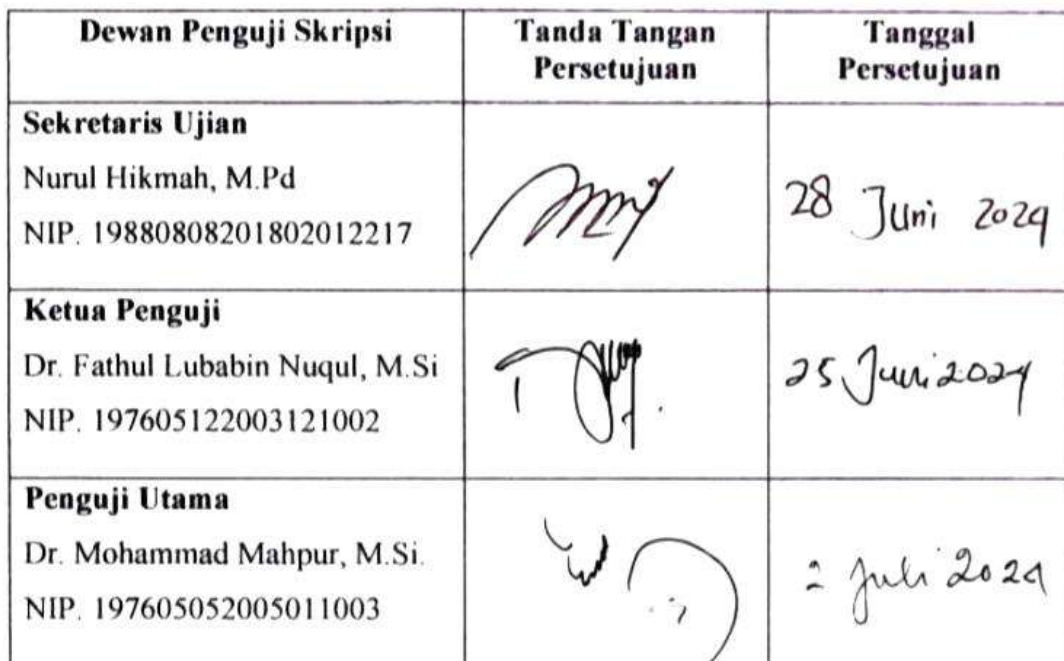 Dewan Penguji Skripsi
Tanda Tangan
Persetujuan
Tanggal
Persetujuan
Sekretaris Ujian
Nurul Hikmah, M.Pd
NIP. 19880808201802012217
28 Juni 2024
Ketua Penguji
Dr. Fathul Lubabin Nuqul, M.Si
NIP. 197605122003121002
25 Juni 2024
Penguji Utama
Dr. Mohammad Mahpur, M.Si.
NIP. 197605052005011003
2 Juli 2024